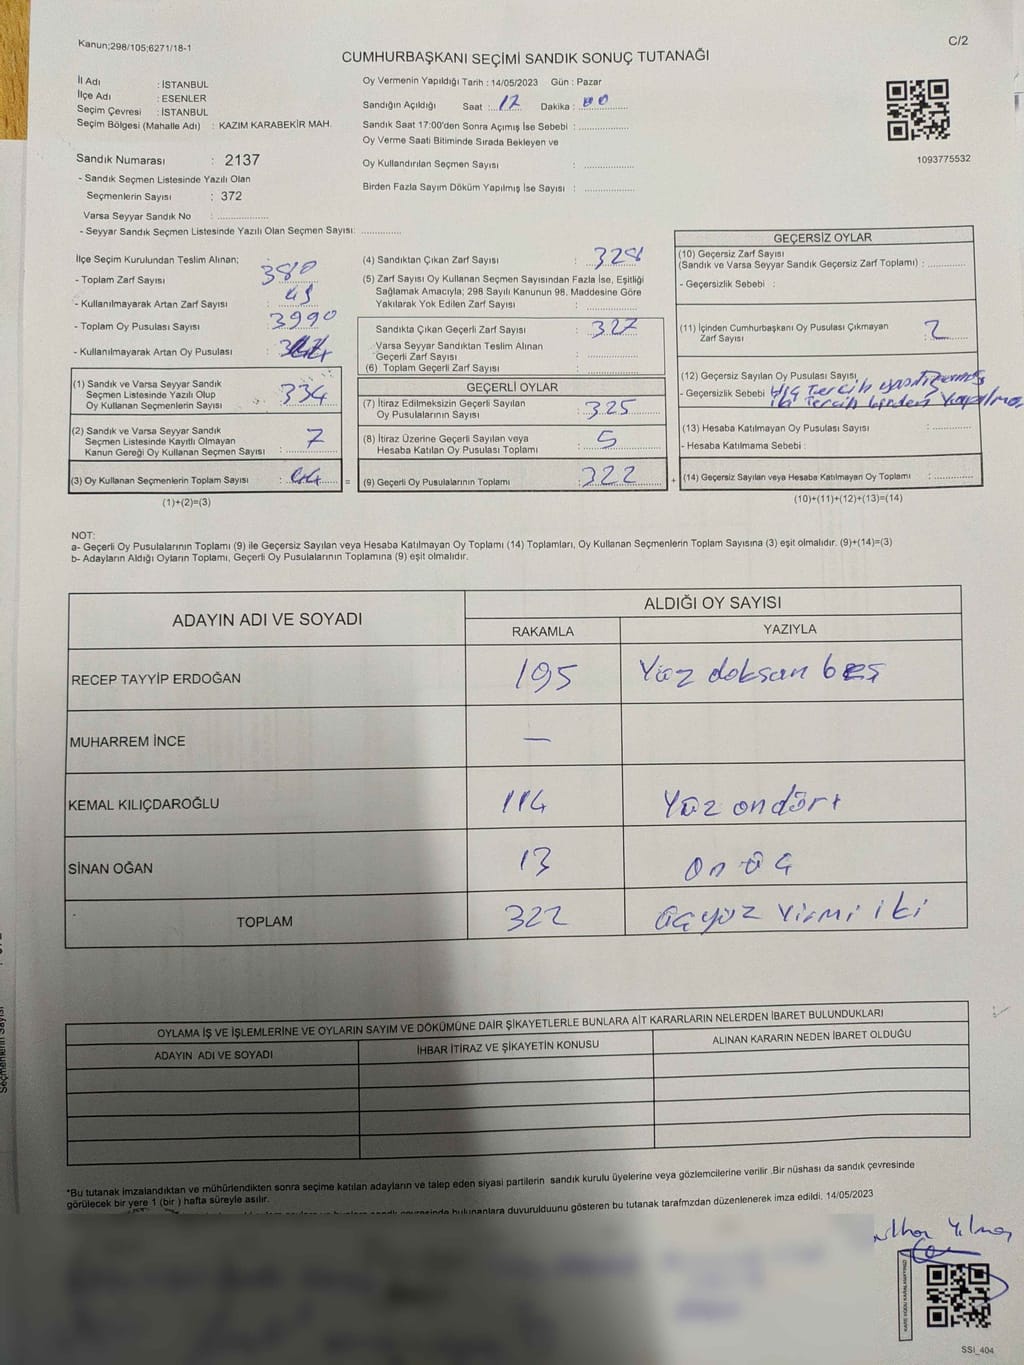 Kanun;298/105;6271/18-1
C/2
CUMHURBAŞKANI SEÇİMİ SANDIK SONUÇ TUTANAĞI
İl Adı : İSTANBUL
İlçe Adı : ESENLER
Seçim Çevresi : İSTANBUL
Seçim Bölgesi (Mahalle Adı) : KAZIM KARABEKİR MAH.
Oy Vermenin Yapıldığı Tarih : 14/05/2023 Gün : Pazar
Sandığın Açıldığı Saat : 17 Dakika : 00
Sandık Saat 17:00'den Sonra Açımış İse Sebebi :
Oy Verme Saati Bitiminde Sırada Bekleyen ve
Oy Kullandırılan Seçmen Sayısı :
Birden Fazla Sayım Döküm Yapılmış İse Sayısı :
1093775532
Sandık Numarası : 2137
- Sandık Seçmen Listesinde Yazılı Olan
Seçmenlerin Sayısı : 372
Varsa Seyyar Sandık No :
- Seyyar Sandık Seçmen Listesinde Yazılı Olan Seçmen Sayısı:
İlçe Seçim Kurulundan Teslim Alınan;
- Toplam Zarf Sayısı : 380
- Kullanılmayarak Artan Zarf Sayısı :
- Toplam Oy Pusulası Sayısı : 3990
- Kullanılmayarak Artan Oy Pusulası :
(1) Sandık ve Varsa Seyyar Sandık
Seçmen Listesinde Yazılı Olup
Oy Kullanan Seçmenlerin Sayısı : 334
(2) Sandık ve Varsa Seyyar Sandık
Seçmen Listesinde Kayıtlı Olmayan
Kanun Gereği Oy Kullanan Seçmen Sayısı : 7
(3) Oy Kullanan Seçmenlerin Toplam Sayısı : =
(1)+(2)=(3)
(4) Sandıktan Çıkan Zarf Sayısı : 328
(5) Zarf Sayısı Oy Kullanan Seçmen Sayısından Fazla İse, Eşitliği
Sağlamak Amacıyla; 298 Sayılı Kanunun 98. Maddesine Göre
Yakılarak Yok Edilen Zarf Sayısı :
Sandıkta Çıkan Geçerli Zarf Sayısı : 327
Varsa Seyyar Sandıktan Teslim Alınan
Geçerli Zarf Sayısı :
(6) Toplam Geçerli Zarf Sayısı :
GEÇERLİ OYLAR
(7) İtiraz Edilmeksizin Geçerli Sayılan
Oy Pusulalarının Sayısı : 325
(8) İtiraz Üzerine Geçerli Sayılan veya
Hesaba Katılan Oy Pusulası Toplamı : 5
(9) Geçerli Oy Pusulalarının Toplamı : 322 +
GEÇERSİZ OYLAR
(10) Geçersiz Zarf Sayısı
(Sandık ve Varsa Seyyar Sandık Geçersiz Zarf Toplamı) :
- Geçersizlik Sebebi :
(11) İçinden Cumhurbaşkanı Oy Pusulası Çıkmayan
Zarf Sayısı : 2
(12) Geçersiz Sayılan Oy Pusulası Sayısı
- Geçersizlik Sebebi Hiç Tercih
iki Tercih birden
(13) Hesaba Katılmayan Oy Pusulası Sayısı :
- Hesaba Katılmama Sebebi :
(14) Geçersiz Sayılan veya Hesaba Katılmayan Oy Toplamı :
(10)+(11)+(12)+(13)=(14)
NOT:
a- Geçerli Oy Pusulalarının Toplamı (9) ile Geçersiz Sayılan veya Hesaba Katılmayan Oy Toplamı (14) Toplamları, Oy Kullanan Seçmenlerin Toplam Sayısına (3) eşit olmalıdır. (9)+(14)=(3)
b- Adayların Aldığı Oyların Toplamı, Geçerli Oy Pusulalarının Toplamına (9) eşit olmalıdır.
ADAYIN ADI VE SOYADI
ALDIĞI OY SAYISI
RAKAMLA YAZIYLA
RECEP TAYYİP ERDOĞAN 195 Yüz doksan beş
MUHARREM İNCE —
KEMAL KILIÇDAROĞLU 114 Yüz ondört
SİNAN OĞAN 13 on üç
TOPLAM 322 üçyüz yirmi iki
OYLAMA İŞ VE İŞLEMLERİNE VE OYLARIN SAYIM VE DÖKÜMÜNE DAİR ŞİKAYETLERLE BUNLARA AİT KARARLARIN NELERDEN İBARET BULUNDUKLARI
ADAYIN ADI VE SOYADI İHBAR İTİRAZ VE ŞİKAYETİN KONUSU ALINAN KARARIN NEDEN İBARET OLDUĞU
*Bu tutanak imzalandıktan ve mühürlendikten sonra seçime katılan adayların ve talep eden siyasi partilerin sandık kurulu üyelerine veya gözlemcilerine verilir .Bir nüshası da sandık çevresinde
görülecek bir yere 1 (bir ) hafta süreyle asılır.
bulunanlara duyurulduunu gösteren bu tutanak tarafmzdan düzenlenerek imza edildi. 14/05/2023
SSI_404